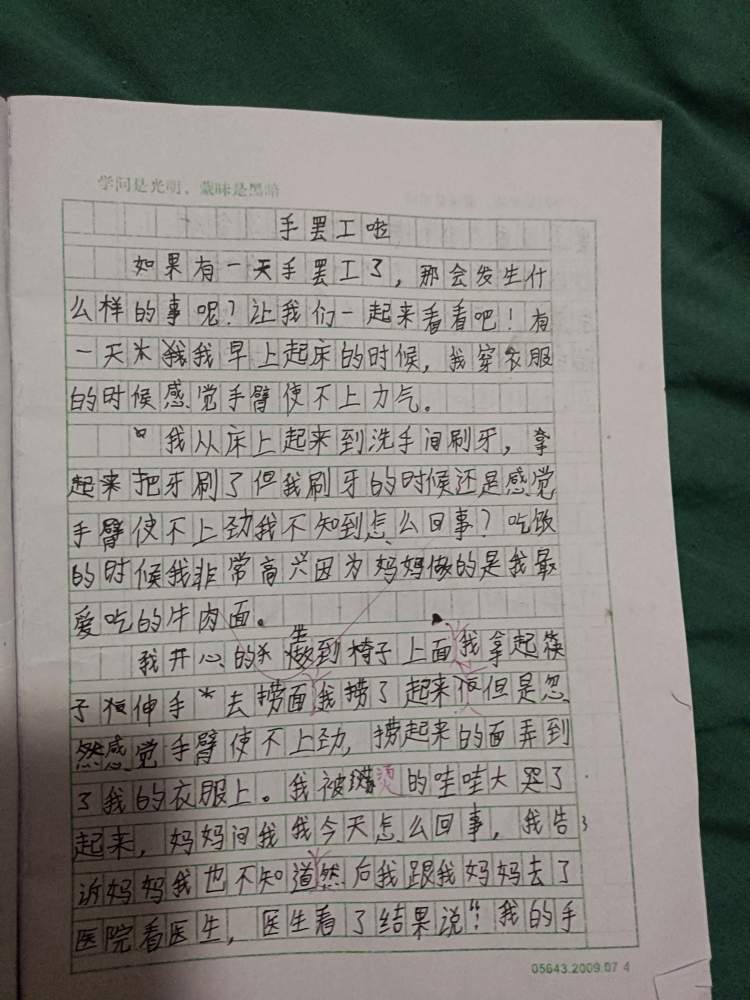 学问是光明，蒙昧是黑暗
手罢工啦
如果有一天手罢工了，那会发生什
么样的事呢？让我们一起来看看吧！有
一天我早上起床的时候，我穿衣服
的时候感觉手臂使不上力气。
我从床上起来到洗手间刷牙，拿
起来把牙刷了但我刷牙的时候还是感觉
手臂使不上劲我不知到怎么回事？吃饭
的时候我非常高兴因为妈妈做的是我最
爱吃的牛肉面。
我开心的坐到椅子上面我拿起筷
子伸手去捞面我捞了起来但是忽
然感觉手臂使不上劲，捞起来的面弄到
了我的衣服上。我被烫的哇哇大哭了
起来，妈妈问我我今天怎么回事，我告
诉妈妈我也不知道然后我跟我妈妈去了
医院看医生，医生看了结果说“：我的手
05643.2009.07 4